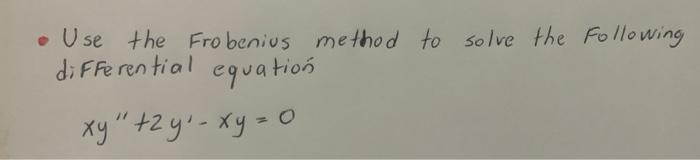 • Use the Frobenius method to solve the Following
diFFerential equation
xy" + 2y' - xy = 0